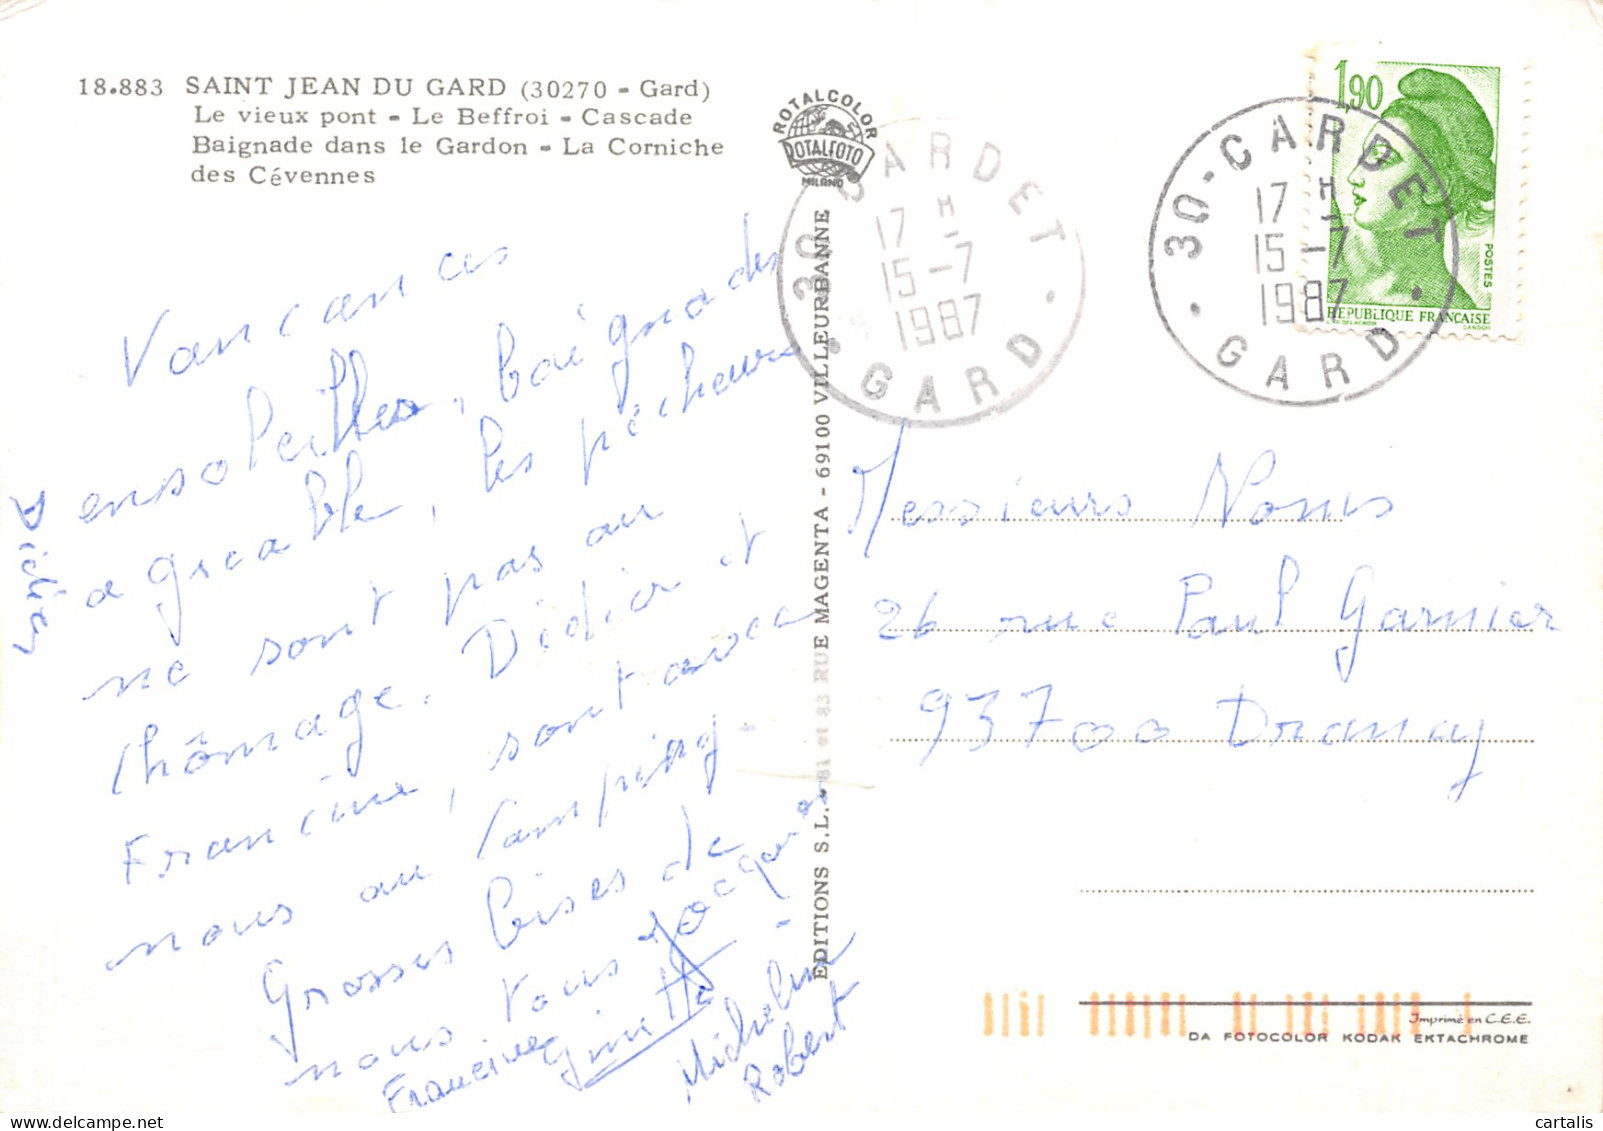 18.883 SAINT JEAN DU GARD (30270 - Gard)
Le vieux pont - Le Beffroi - Cascade
Baignade dans le Gardon - La Corniche
des Cévennes
Vancances
ensoleillées, baignades
agreable, les pécheurs
ne sont pas au
chômage. Didier et
Francine, sont avec
nous au camping.
Grosses bises de
nous tous Jacques
Francine Ginette Micheline
Robert
Didier
ROTALCOLOR
ROTALFOTO
MILANO
EDITIONS S.L. - 81 91 83 RUE MAGENTA - 69100 VILLEURBANNE
30 CARDET
17 H
15-7
1987
GARD
30-CARDET
17 H
15-7
1987
GARD
1,90
POSTES
REPUBLIQUE FRANÇAISE
Messieurs Nonus
26 rue Paul Garnier
93700 Drancy
Imprimé en C.E.E.
DA FOTOCOLOR KODAK EKTACHROME
cartalis
www.delcampe.net